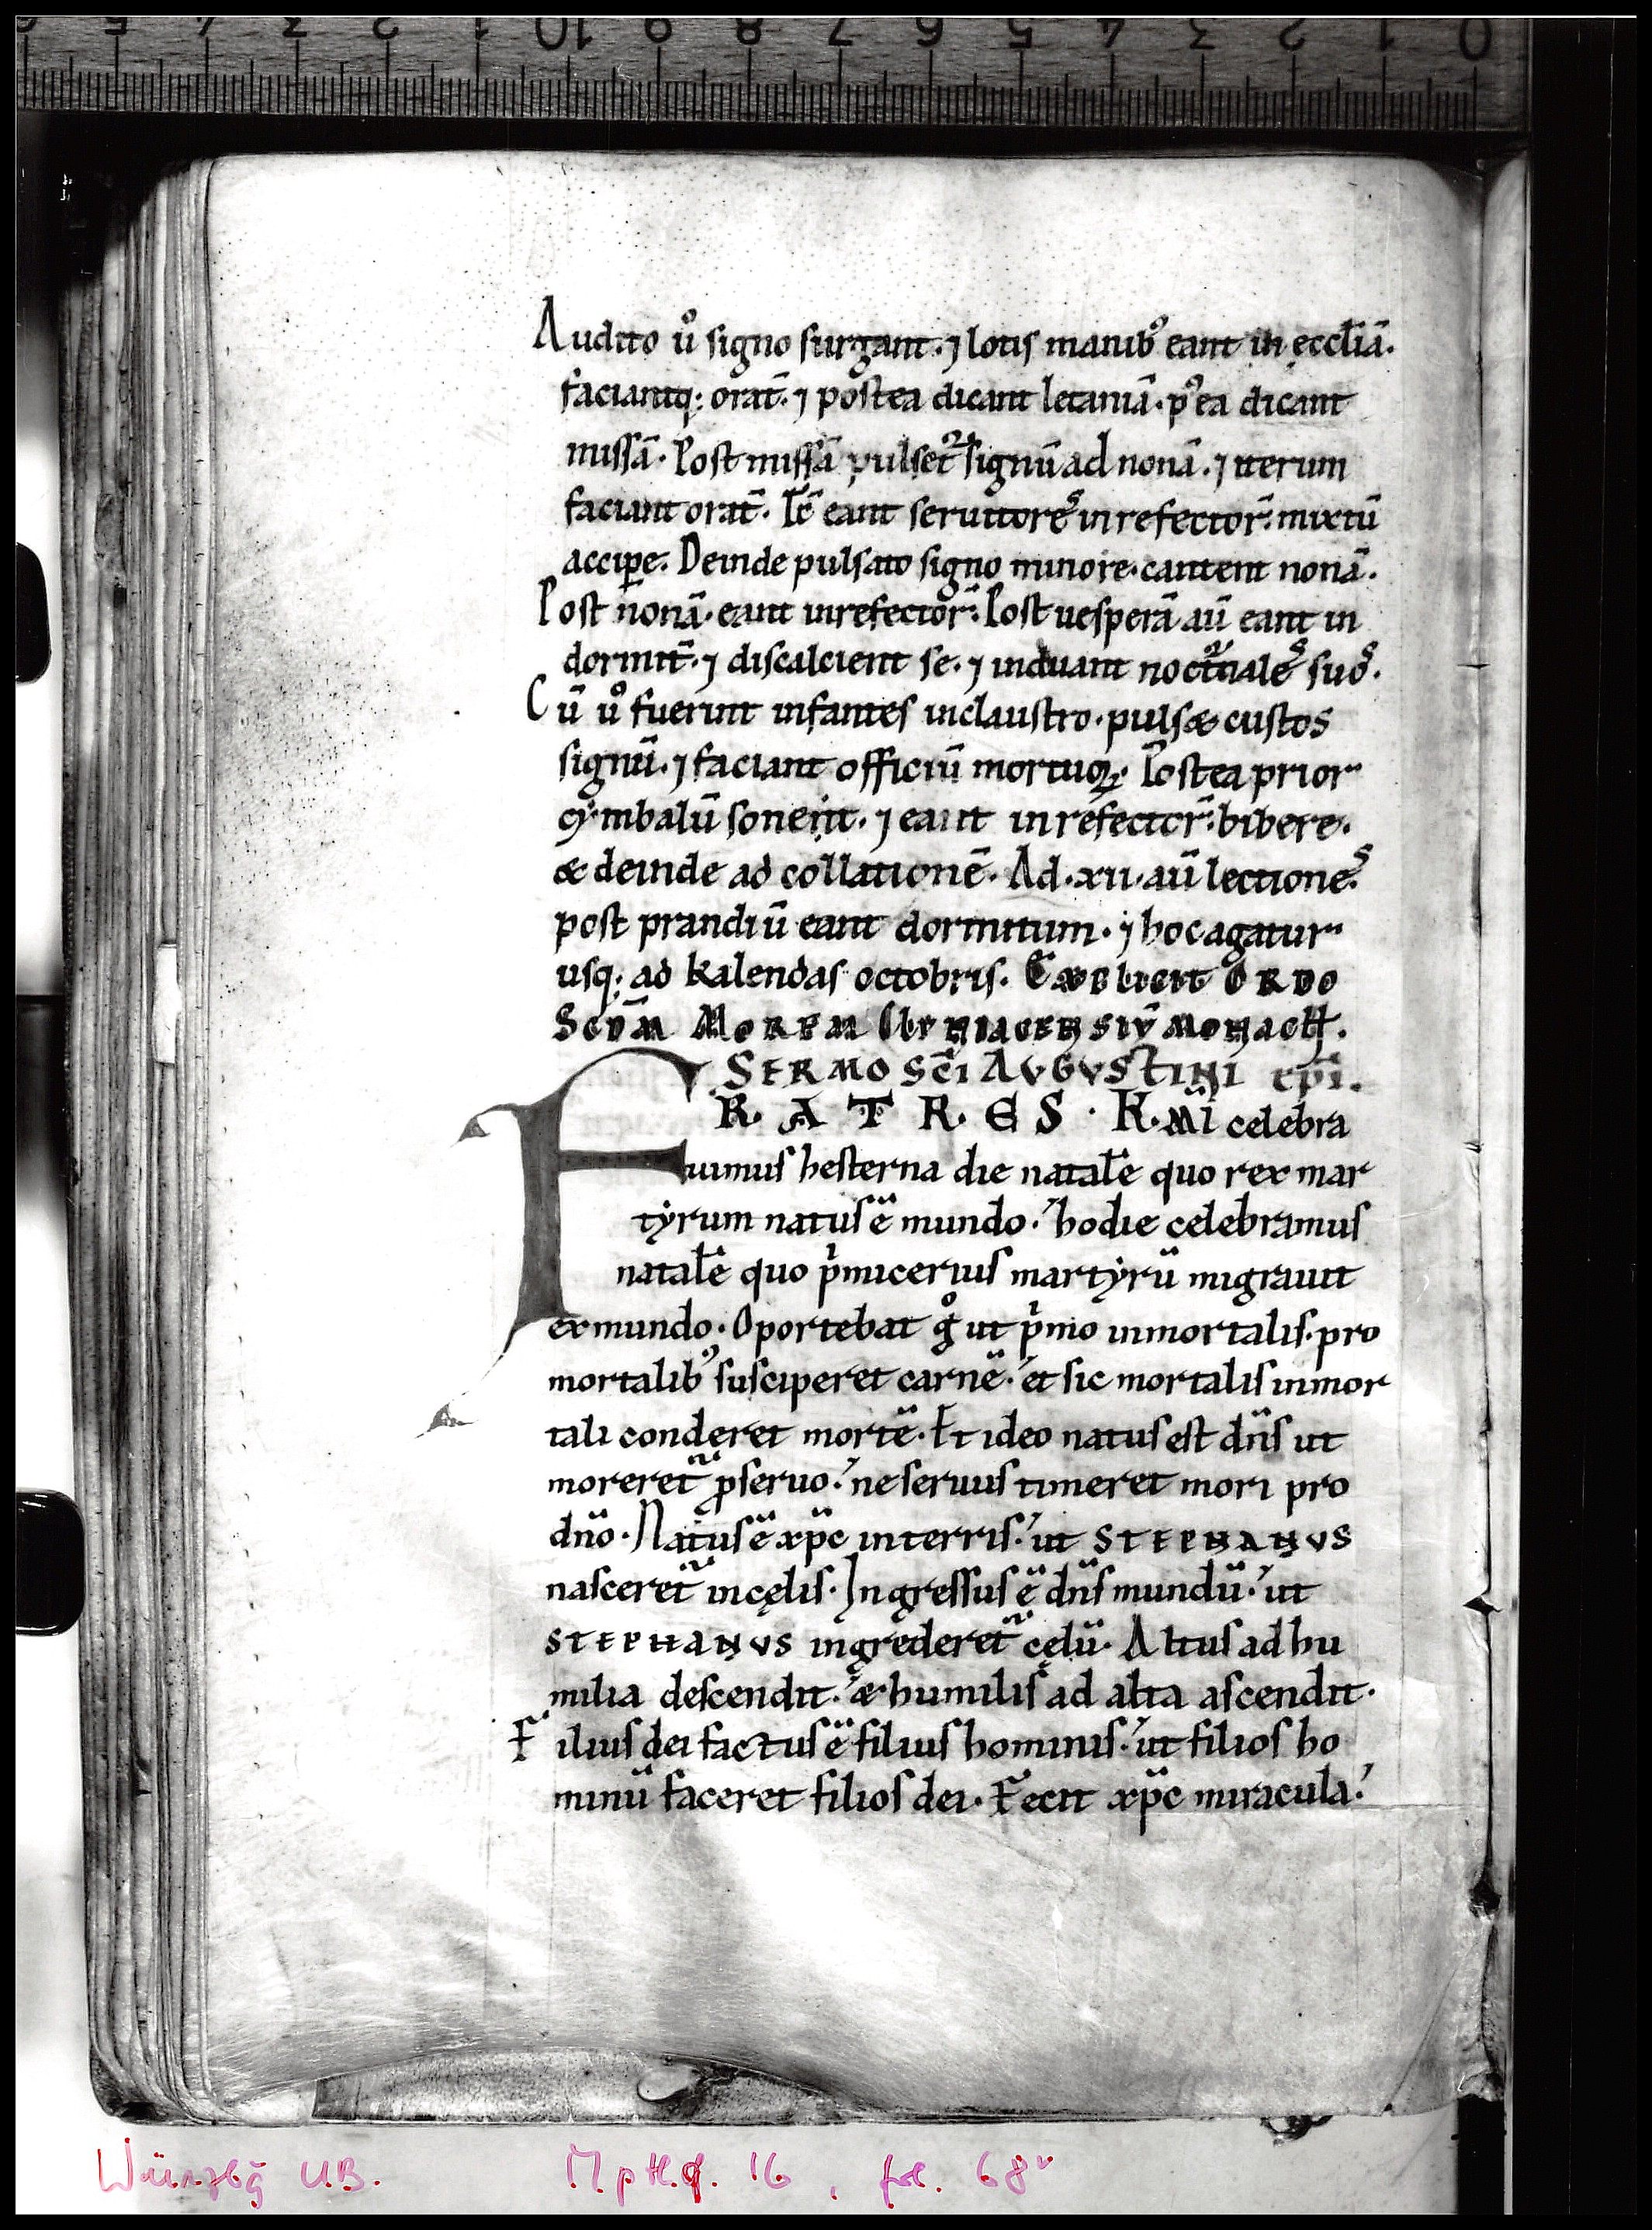 5 4 3 2 1 10 9 8 7 6 5 4 3 2 1 0
Audito ů signo surgant. ⁊ lotis manibꝰ eant in ęcclīā.
faciantq; orat̄. ⁊ postea dicant letaniā. pꝰea dicant
missā. Post missā pulset᷑ signū ad nonā. ⁊ iterum
faciant orat̄. It̄ eant seruitores in refector̄. mixtū
acciꝑe. Deinde pulsato signo minore. cantent nonā.
Post nonā. eant in refector̄. Post uesperā aū eant in
dormit̄. ⁊ discalcient se. ⁊ induant noct᷑nales suos.
Cū ů fuerint infantes in claustro. puls& custos
signū. ⁊ faciant officiū mortuoꝝ. Postea prior
cẏmbalū sonent. ⁊ eant in refector̄. bibere.
& deinde ad collationē. Ad .xii. aū lectiones
post prandiū eant dormitum. ⁊ hoc agatur
usq; ad kalendas octobris. Explicit ORDO
SCDM̄ MOREM CLUNIACENSIV̄ MONACH.
SERMO SC̄I AVGVSTINI EPĪ.
FRATRES. K. Mī celebra
uimus hesterna die natale quo rex mar
tẏrum natus ē mundo. hodie celebramus
natale quo pͥmicerius martẏrū migrauit
ex mundo. Oportebat gͦ ut pͥmo inmortalis. pro
mortalibꝰ susciperet carnē. et sic mortalis inmor
tali conderet mortē. Et ideo natus est dn̄s ut
moreret᷑ ꝓ seruo. ne seruus timeret mori pro
dn̄o. Natus ē xp̄c in terris. ut STEPHANVS
nasceret᷑ in cęlis. Ingressus ē dn̄s mundū. ut
STEPHANVS ingrederet᷑ cęlū. Altus ad hu
milia descendit. & humilis ad alta ascendit.
Filius dei factus ē filius hominis. ut filios ho
minū faceret filios dei. Fecit xp̄c miracula.
Würzbg U.B. M p th. q. 16, fol. 68v